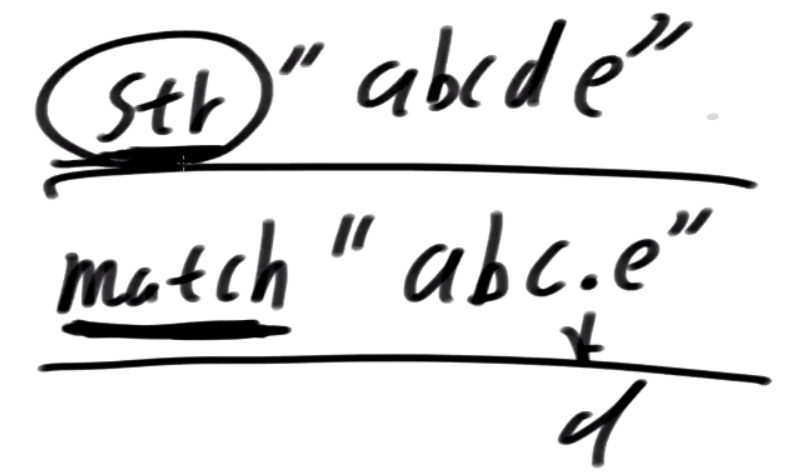 str "abcde"
match "abc.e"
d